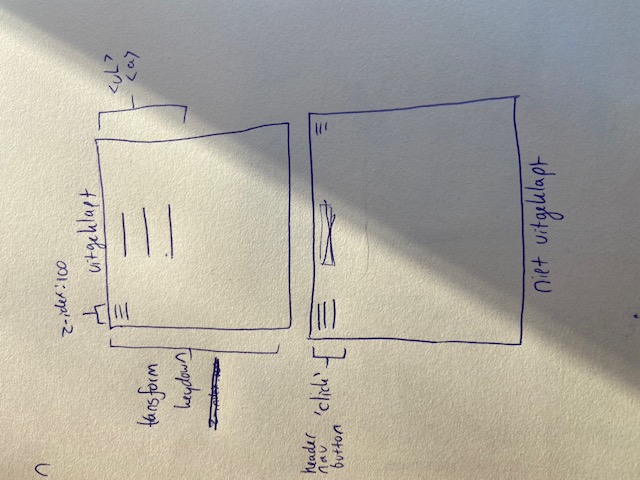 n
z-idex:100
uitgeklapt
<uL>
<a>
tansform
keydown
header
nav
button
'click'
niet uitgeklapt